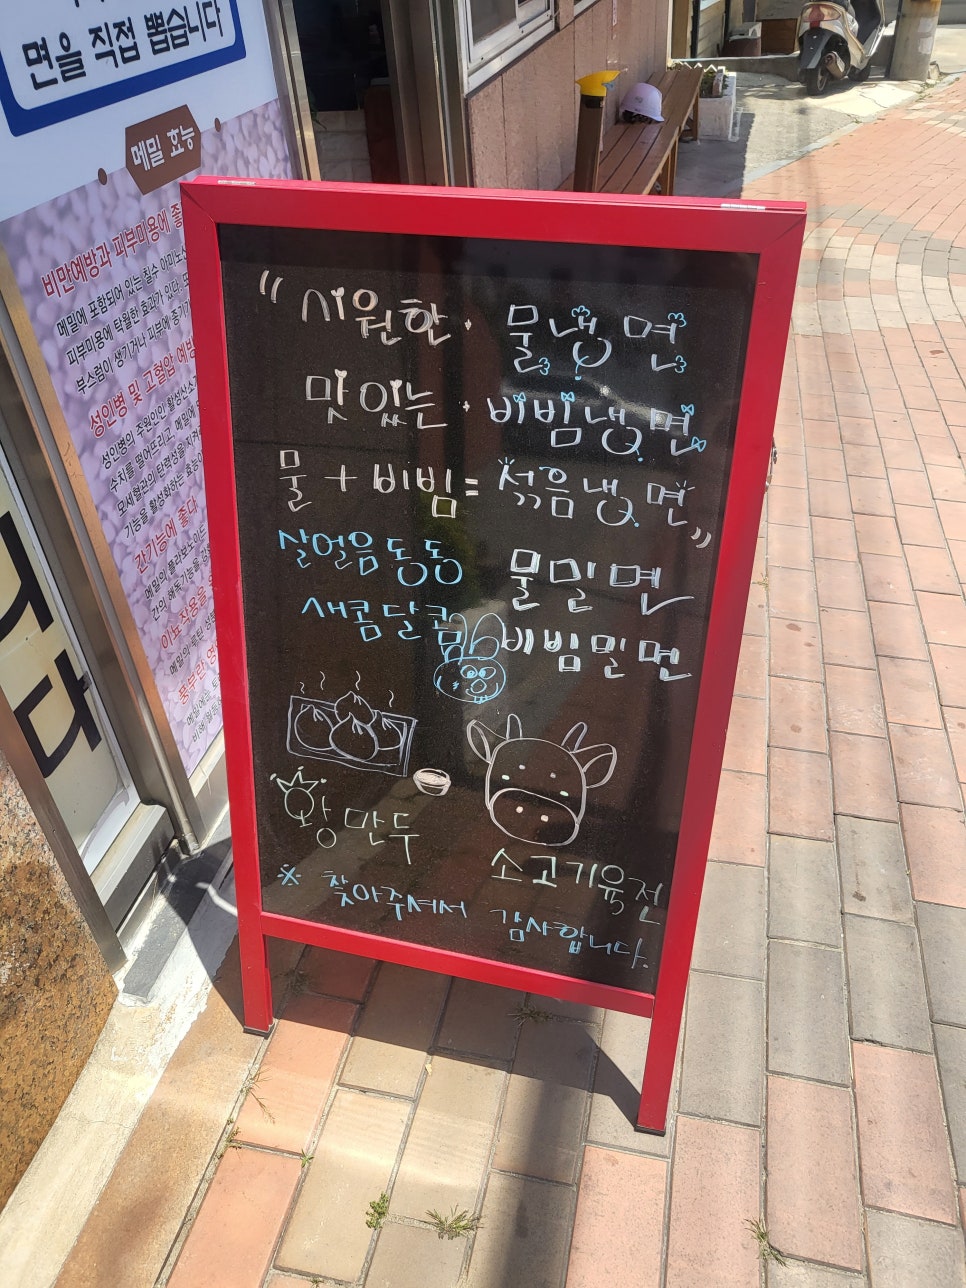 면을 직접 뽑습니다
메밀 효능
비만예방과 피부미용에
메밀에 포함되어 있는 칠수 아미노산
피부미용에 탁월한 효과가 있다.
부스럼이 생기거나 피부에
성인병 및 고혈압 예방
성인병의 주원인인 활성산소
수치를 떨어뜨리고, 메밀에
모세혈관의 탄력성을 지켜
간기능에 좋다
간의 해독기능을
이뇨작용을
"시원한 · 물냉면
맛있는 · 비빔냉면
물 + 비빔 = 섞음냉면"
살얼음 동동 물밀면
새콤달콤 비빔밀면
왕만두
소고기육전
※ 찾아주셔서 감사합니다.